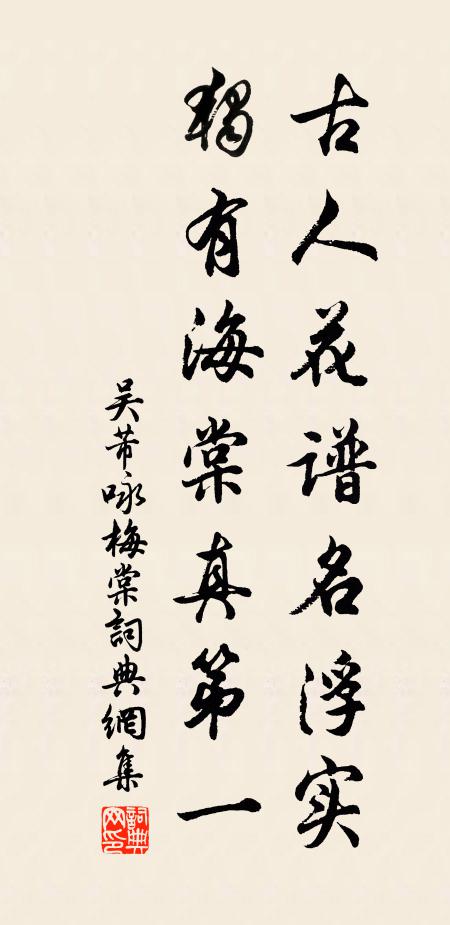 古人花谱名浮实
独有海棠真第一
吴芾咏梅棠詞典網集
詞典网印